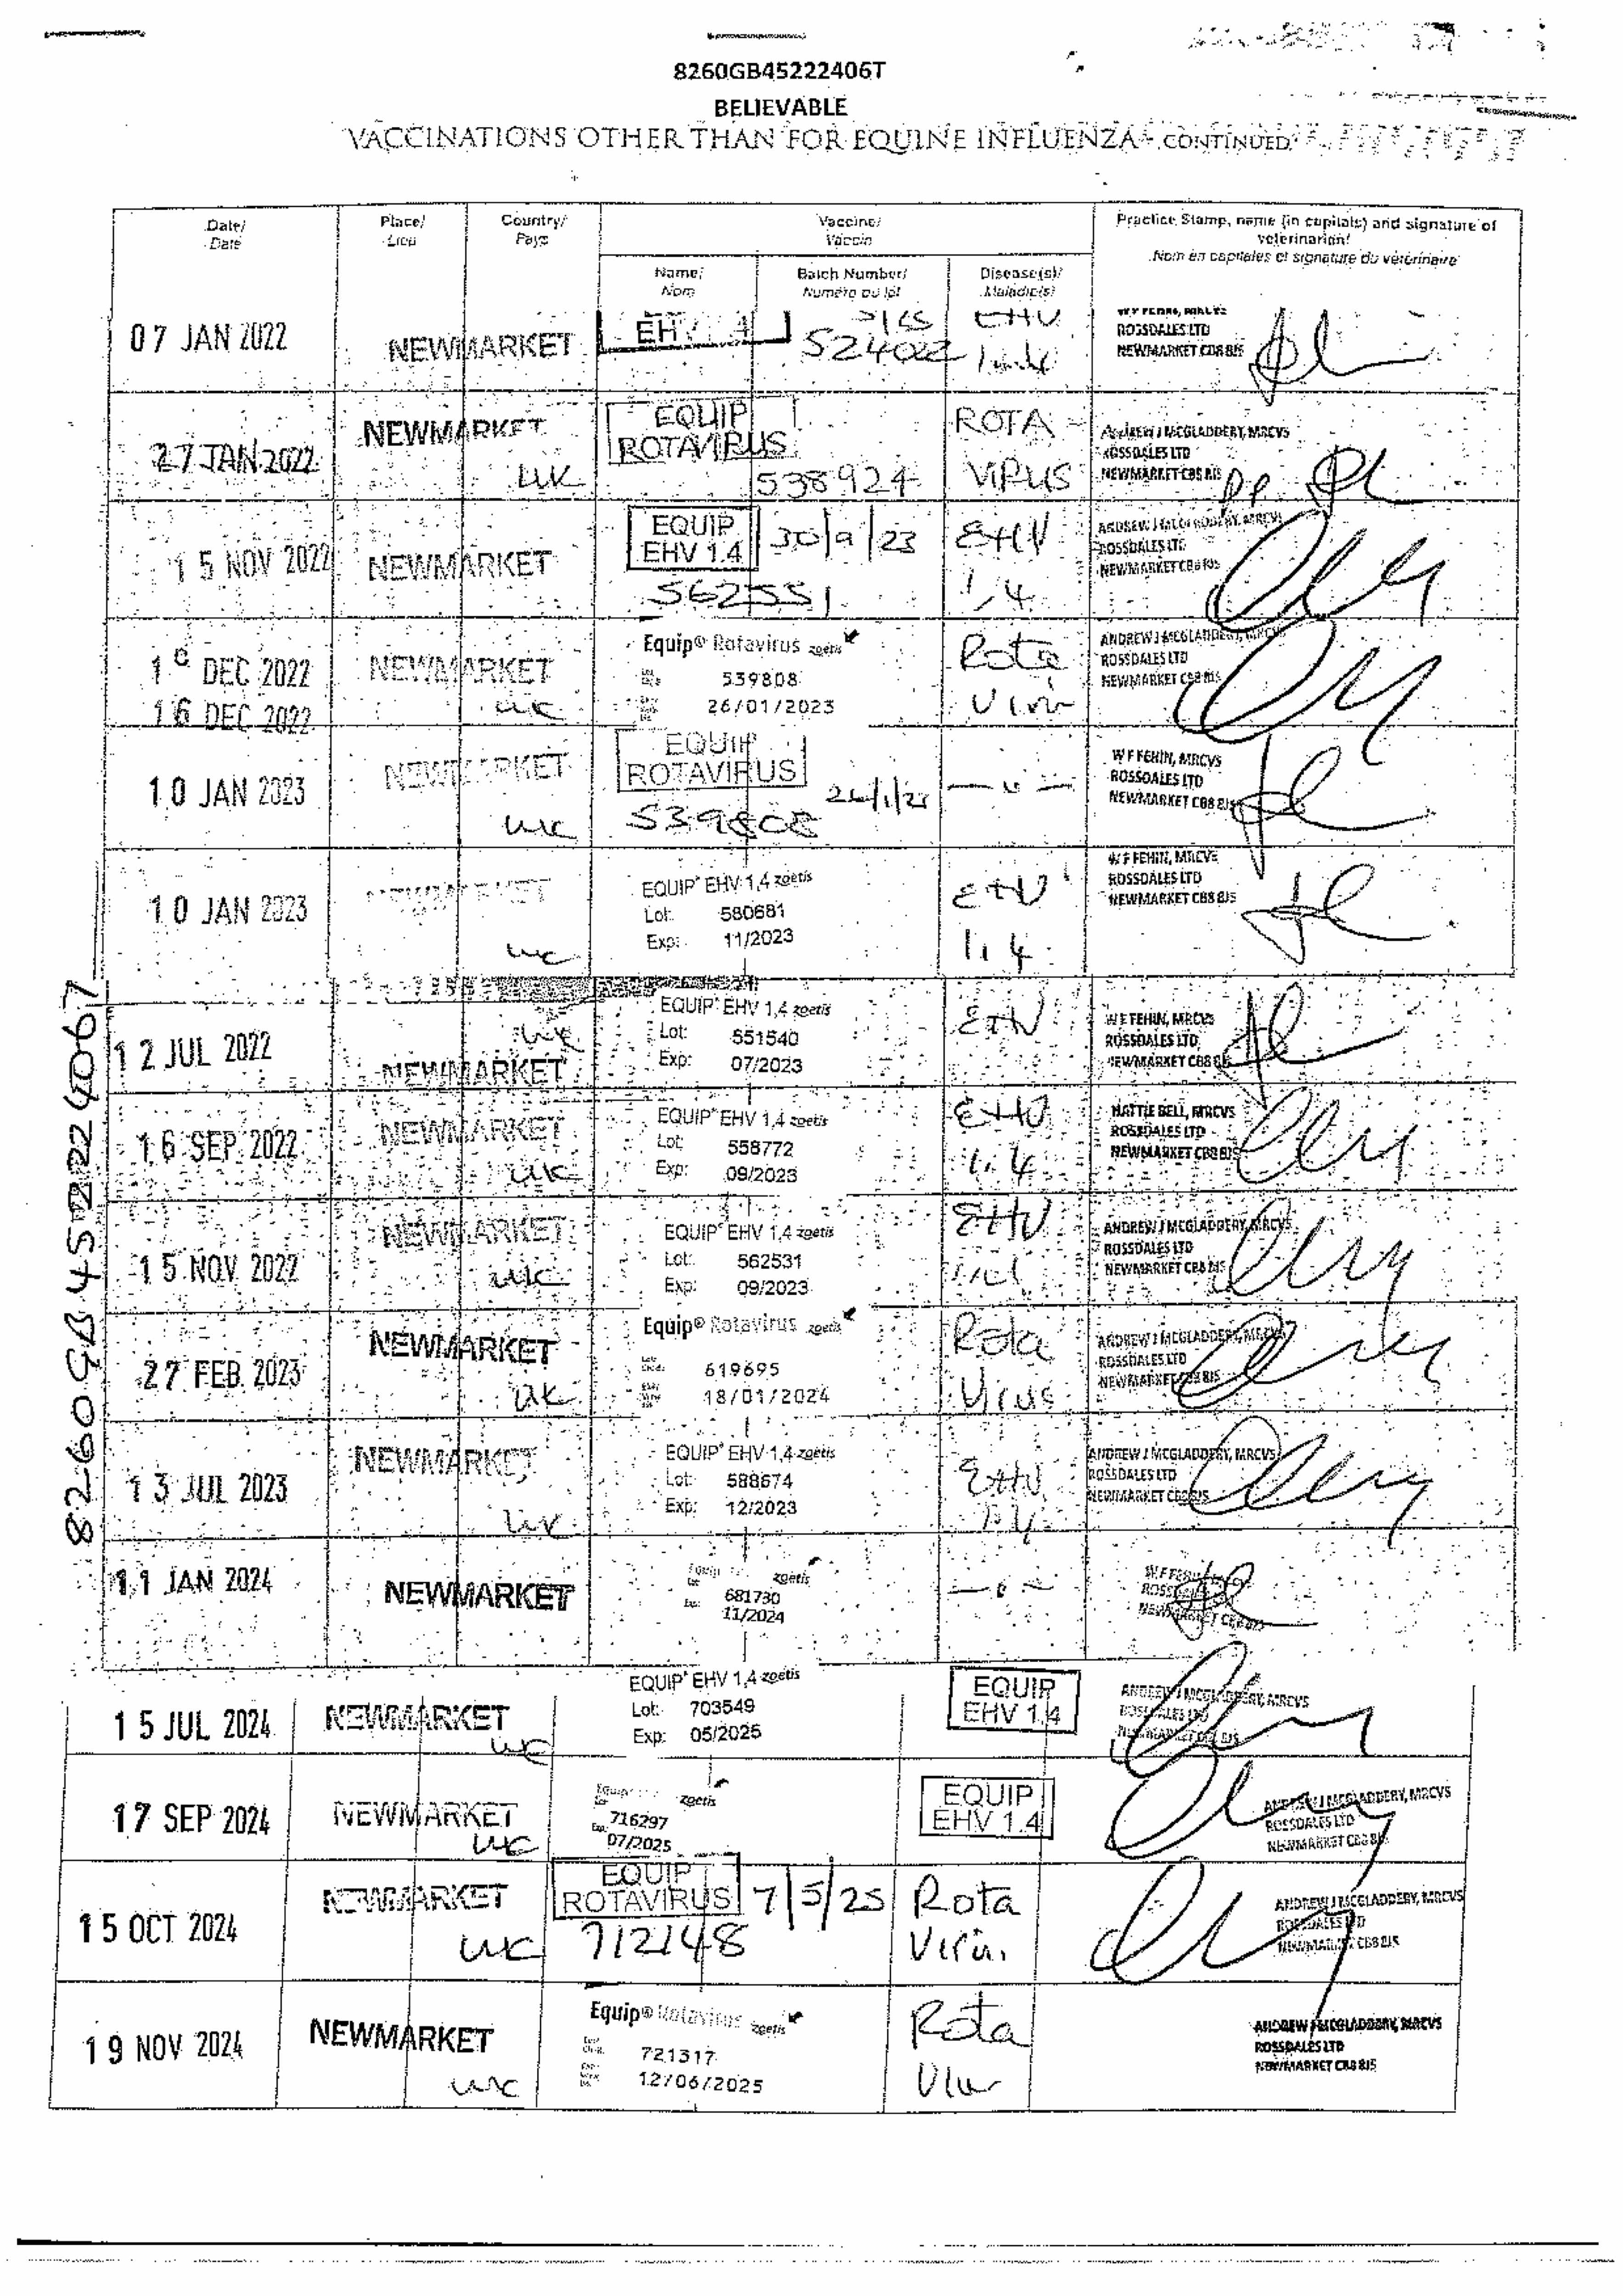 8260GB45222406T
BELIEVABLE
VACCINATIONS OTHER THAN FOR EQUINE INFLUENZA - CONTINUED
Date/ Place/ Country/ Vaccine/ Practice Stamp, name (in capitals) and signature of
Date Lieu Pays Vaccin veterinarian/
Nom en capitales et signature du vétérinaire
Name/ Batch Number/ Disease(s)/
Nom Numéro du lot Maladie(s)
07 JAN 2022 NEWMARKET EHV 524022 EHV 1.4
ROSSDALES LTD
NEWMARKET CB8 8JS
27 JAN 2022 NEWMARKET UK EQUIP ROTAVIRUS 538924 ROTA VIRUS
ANDREW J MCGLADDERY, MRCVS
ROSSDALES LTD
NEWMARKET CB8 8JS pp
15 NOV 2022 NEWMARKET EQUIP EHV 1.4 30/9/23 EHV 1,4
ANDREW J MCGLADDERY, MRCVS
ROSSDALES LTD
NEWMARKET CB8 8JS
DEC 2022 NEWMARKET UK Equip® Rotavirus zoetis Rota
16 DEC 2022 539808
26/01/2023
ANDREW J MCGLADDERY, MRCVS
ROSSDALES LTD
NEWMARKET CB8 8JS
10 JAN 2023 NEWMARKET UK EQUIP ROTAVIRUS 539808
W F FEHIN, MRCVS
ROSSDALES LTD
NEWMARKET CB8 8JS
10 JAN 2023 NEWMARKET UK EQUIP EHV 1,4 zoetis EHV 1,4
Lot: 580681
Exp: 11/2023
W F FEHIN, MRCVS
ROSSDALES LTD
NEWMARKET CB8 8JS
12 JUL 2022 UK NEWMARKET EQUIP EHV 1,4 zoetis EHV
Lot: 551540
Exp: 07/2023
W F FEHIN, MRCVS
ROSSDALES LTD
NEWMARKET CB8 8JS
16 SEP 2022 NEWMARKET UK EQUIP EHV 1,4 zoetis EHV 1,4
Lot: 558772
Exp: 09/2023
HATTIE BELL, MRCVS
ROSSDALES LTD
NEWMARKET CB8 8JS
15 NOV 2022 NEWMARKET UK EQUIP EHV 1,4 zoetis EHV
Lot: 562531
Exp: 09/2023
ANDREW J MCGLADDERY, MRCVS
ROSSDALES LTD
NEWMARKET CB8 8JS
27 FEB 2023 NEWMARKET UK Equip® Rotavirus zoetis Rota Virus
619695
18/01/2024
ANDREW J MCGLADDERY, MRCVS
ROSSDALES LTD
NEWMARKET CB8 8JS
13 JUL 2023 NEWMARKET UK EQUIP EHV 1,4 zoetis EHV 1.4
Lot: 588674
Exp: 12/2023
ANDREW J MCGLADDERY, MRCVS
ROSSDALES LTD
NEWMARKET CB8 8JS
11 JAN 2024 NEWMARKET Equip zoetis
681730
11/2024
15 JUL 2024 NEWMARKET UK EQUIP EHV 1,4 zoetis EQUIP EHV 1.4
Lot: 703549
Exp: 05/2025
ANDREW J MCGLADDERY, MRCVS
ROSSDALES LTD
NEWMARKET CB8 8JS
17 SEP 2024 NEWMARKET UK Equip zoetis EQUIP EHV 1.4
716297
07/2025
ANDREW J MCGLADDERY, MRCVS
ROSSDALES LTD
NEWMARKET CB8 8JS
15 OCT 2024 NEWMARKET UK EQUIP ROTAVIRUS 7/5/25 712148 Rota
ANDREW J MCGLADDERY, MRCVS
ROSSDALES LTD
NEWMARKET CB8 8JS
19 NOV 2024 NEWMARKET UK Equip® Rotavirus zoetis Rota
721317
12/06/2025
ANDREW J MCGLADDERY, MRCVS
ROSSDALES LTD
NEWMARKET CB8 8JS